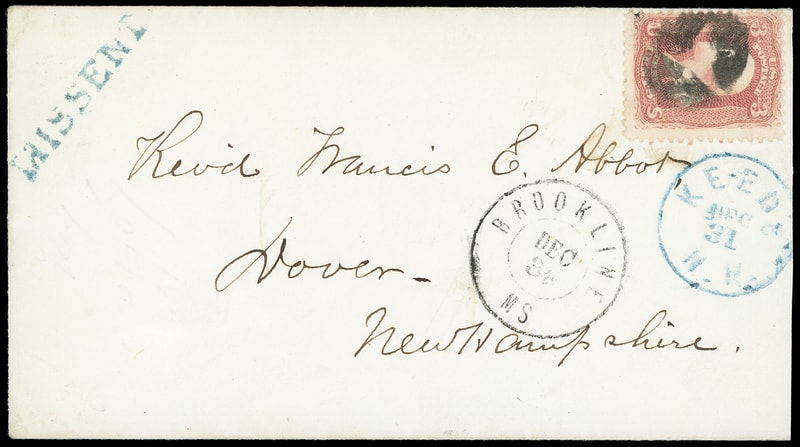 MISSENT
U 3
US POSTAGE
S 3
Revd Francis E. Abbot,
Dover-
New Hampshire.
BROOKLINE
DEC
MS
KEENE
DEC
31
N.H.